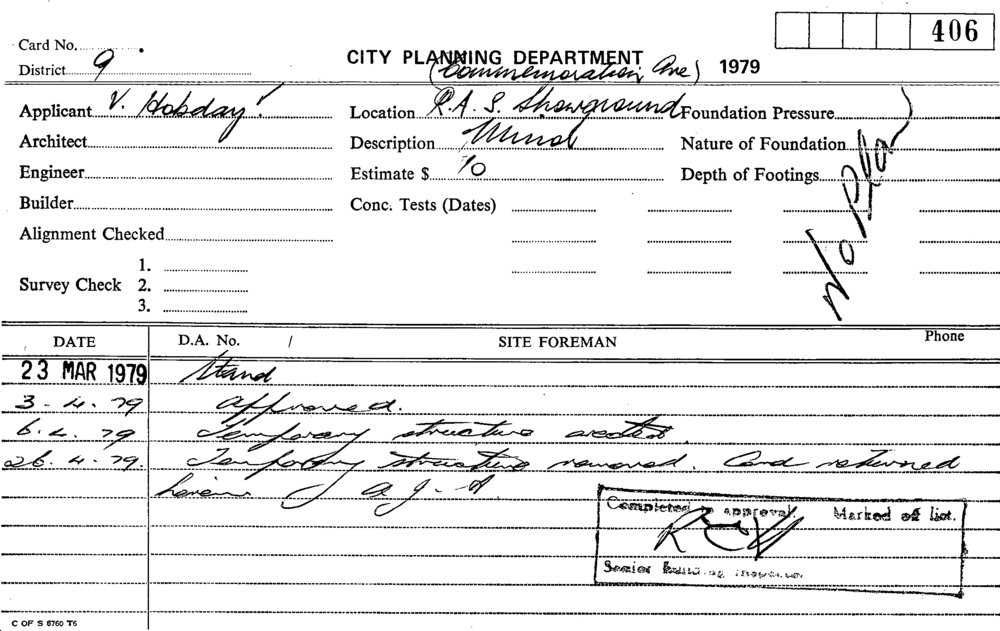 406
Card No.
CITY PLANNING DEPARTMENT 1979
(Commemoration Ave)
District 9
Applicant V. Hobday Location R.A.S. Showground Foundation Pressure
Architect Description Minor Nature of Foundation
Engineer Estimate $ 70 Depth of Footings
No Plan
Builder Conc. Tests (Dates)
Alignment Checked
1.
Survey Check 2.
3.
DATE D.A. No. / SITE FOREMAN Phone
23 MAR 1979 Stand
3.4.79 approved.
6.4.79 Temporary structure erected.
26.4.79. Temporary structure removed. Card returned
herein A J. A.
Completed to approval. Marked off list.
Senior Building Inspector
C OF S 6760 T6